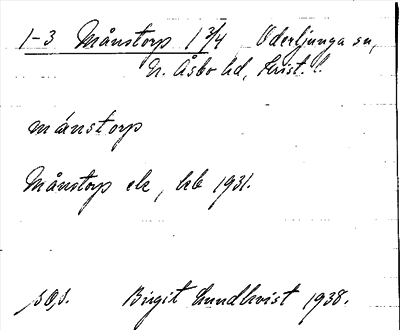 1-3 Månstorp 1 3/4 Oderljunga sn,
N. Åsbo hd, Krist. l.
månstorp
Månstorp ek, hb 1931.
so,s. Birgit Lundkvist 1938.